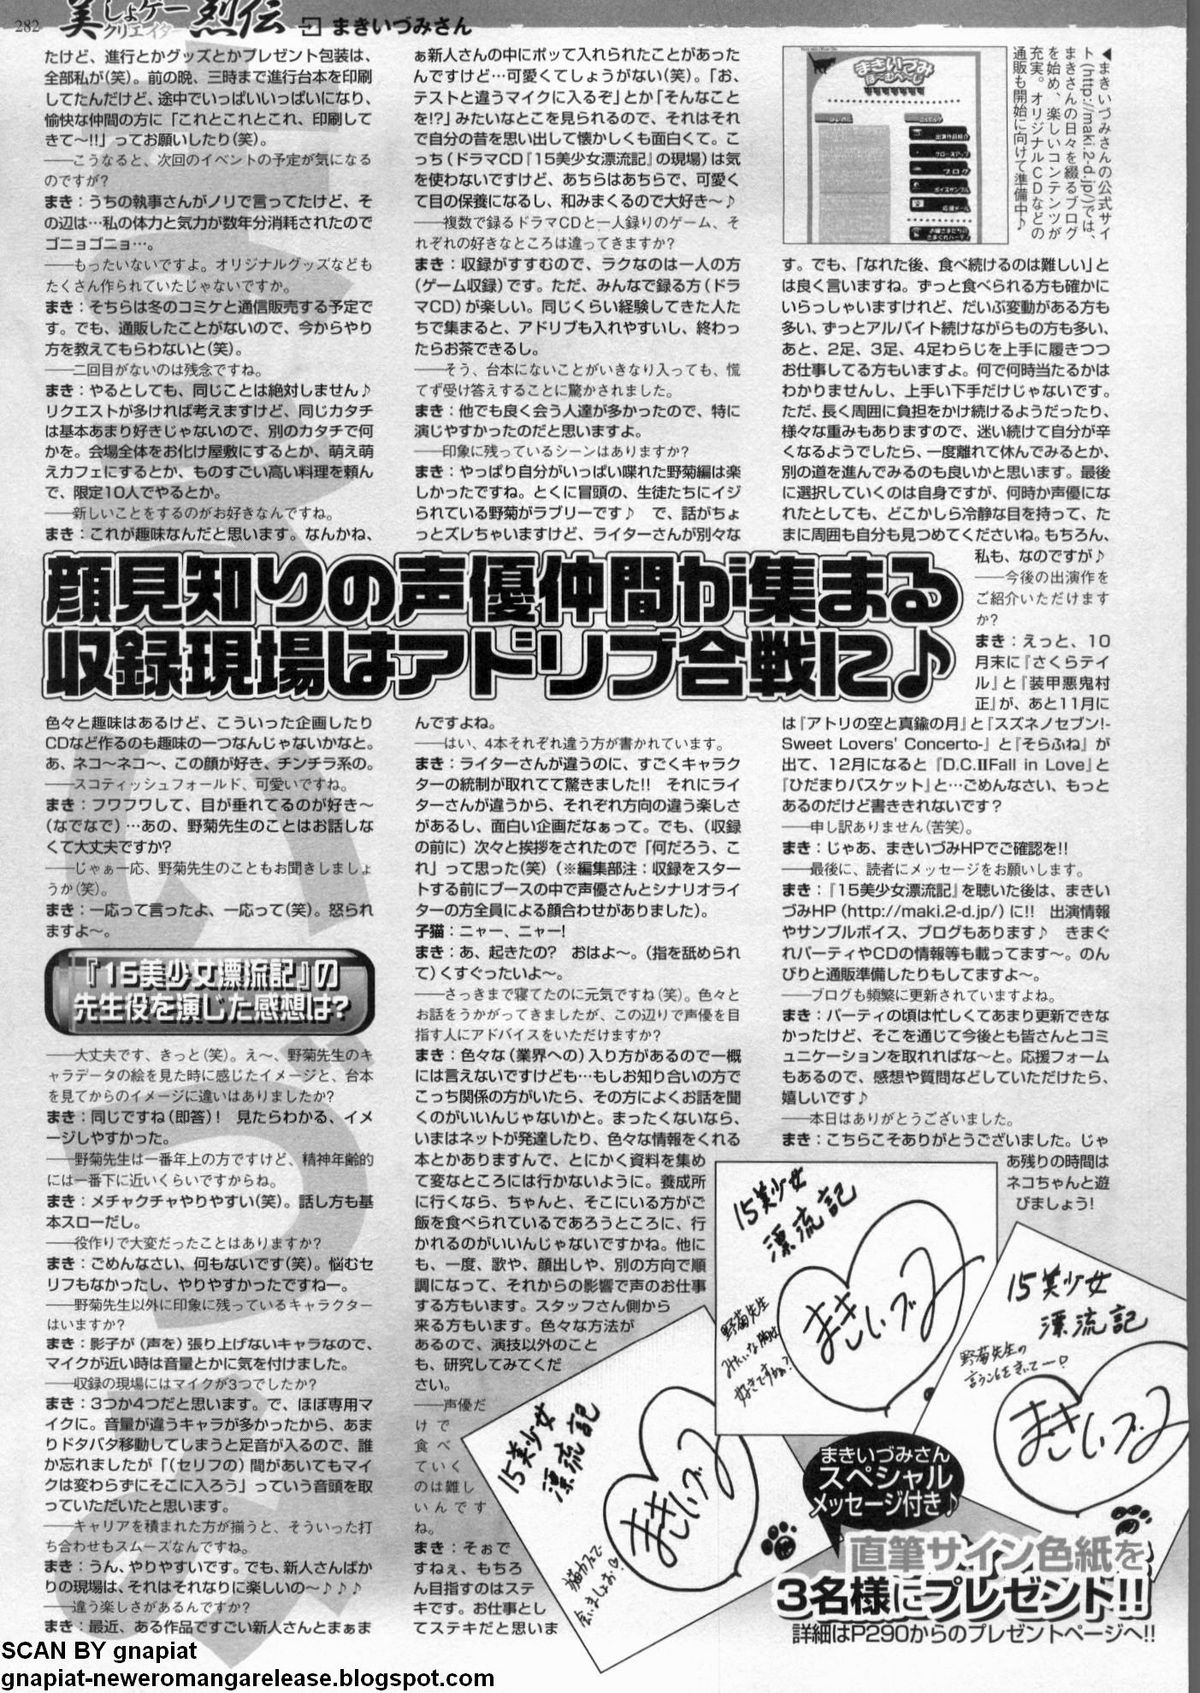 282
美しょゲー
クリエイター
烈伝
まきいづみさん
たけど、進行とかグッズとかプレゼント包装は、
全部私が(笑)。前の晩、三時まで進行台本を印刷
してたんだけど、途中でいっぱいいっぱいになり、
愉快な仲間の方に「これとこれとこれ、印刷して
きて〜!!」ってお願いしたり(笑)。
――こうなると、次回のイベントの予定が気になる
のですが?
まき：うちの執事さんがノリで言ってたけど、そ
の辺は…私の体力と気力が数年分消耗されたので
ゴニョゴニョ…。
――もったいないですよ。オリジナルグッズなども
たくさん作られていたじゃないですか。
まき：そちらは冬のコミケと通信販売する予定で
す。でも、通販したことがないので、今からやり
方を教えてもらわないと(笑)。
――二回目がないのは残念ですね。
まき：やるとしても、同じことは絶対しません♪
リクエストが多ければ考えますけど、同じカタチ
は基本あまり好きじゃないので、別のカタチで何
かを。会場全体をお化け屋敷にするとか、萌え萌
えカフェにするとか、ものすごい高い料理を頼ん
で、限定10人でやるとか。
――新しいことをするのがお好きなんですね。
まき：これが趣味なんだと思います。なんかね、
顔見知りの声優仲間が集まる
収録現場はアドリブ合戦に♪
色々と趣味はあるけど、こういった企画したり
CDなど作るのも趣味の一つなんじゃないかなと。
あ、ネコ〜ネコ〜、この顔が好き、チンチラ系の。
――スコティッシュフォールド、可愛いですね。
まき：フワフワして、目が垂れてるのが好き〜
(なでなで)…あの、野菊先生のことはお話しな
くて大丈夫ですか?
――じゃぁ一応、野菊先生のこともお聞きしましょ
うか(笑)。
まき：一応って言ったよ、一応って(笑)。怒られ
ますよ〜。
『15美少女漂流記』の
先生役を演じた感想は?
――大丈夫です、きっと(笑)。え〜、野菊先生のキ
ャラデータの絵を見た時に感じたイメージと、台本
を見てからのイメージに違いはありましたか?
まき：同じですね(即答)!　見たらわかる、イメ
ージしやすかった。
――野菊先生は一番年上の方ですけど、精神年齢的
には一番下に近いくらいですからね。
まき：メチャクチャやりやすい(笑)。話し方も基
本スローだし。
――役作りで大変だったことはありますか?
まき：ごめんなさい、何もないです(笑)。悩むセ
リフもなかったし、やりやすかったですねー。
――野菊先生以外に印象に残っているキャラクター
はいますか?
まき：影子が(声を)張り上げないキャラなので、
マイクが近い時は音量とかに気を付けました。
――収録の現場にはマイクが3つでしたか?
まき：3つか4つだと思います。で、ほぼ専用マ
イクに。音量が違うキャラが多かったから、あま
りドタバタ移動してしまうと足音が入るので、誰
か忘れましたが「(セリフの)間があいてもマイ
クは変わらずにそこに入ろう」っていう音頭を取
っていただいたと思います。
――キャリアを積まれた方が揃うと、そういった打
ち合わせもスムーズなんですね。
まき：うん、やりやすいです。でも、新人さんばか
りの現場は、それはそれなりに楽しいの〜♪♪♪
――違う楽しさがあるんですか?
まき：最近、ある作品ですごい新人さんとまぁま
ぁ新人さんの中にポッて入れられたことがあった
んですけど…可愛くてしょうがない(笑)。「お、
テストと違うマイクに入るぞ」とか「そんなこと
を!?」みたいなとこを見られるので、それはそれ
で自分の昔を思い出して懐かしくも面白くて。こ
っち(ドラマCD『15美少女漂流記』の現場)は気
を使わないですけど、あちらはあちらで、可愛く
て目の保養になるし、和みまくるので大好き〜♪
――複数で録るドラマCDと一人録りのゲーム、そ
れぞれの好きなところは違ってきますか?
まき：収録がすすむので、ラクなのは一人の方
(ゲーム収録)です。ただ、みんなで録る方(ドラ
マCD)が楽しい。同じくらい経験してきた人た
ちで集まると、アドリブも入れやすいし、終わっ
たらお茶できるし。
――そう、台本にないことがいきなり入っても、慌
てず受け答えすることに驚かされました。
まき：他でも良く会う人達が多かったので、特に
演じやすかったのだと思いますよ。
――印象に残っているシーンはありますか?
まき：やっぱり自分がいっぱい喋れた野菊編は楽
しかったですね。とくに冒頭の、生徒たちにイジ
られている野菊がラブリーです♪　で、話がちょ
っとズレちゃいますけど、ライターさんが別々な
んですよね。
――はい、4本それぞれ違う方が書かれています。
まき：ライターさんが違うのに、すごくキャラク
ターの統制が取れてて驚きました!!　それにライ
ターさんが違うから、それぞれ方向の違う楽しさ
があるし、面白い企画だなぁって。でも、(収録
の前に)次々と挨拶をされたので「何だろう、こ
れ」って思った(笑)(※編集部注：収録をスター
トする前にブースの中で声優さんとシナリオライ
ターの方全員による顔合わせがありました)。
子猫：ニャー、ニャー!
まき：あ、起きたの?　おはよ〜。(指を舐められ
て)くすぐったいよ〜。
――さっきまで寝てたのに元気ですね(笑)。色々と
お話をうかがってきましたが、この辺りで声優を目
指す人にアドバイスをいただけますか?
まき：色々な(業界への)入り方があるので一概
には言えないですけども…もしお知り合いの方で
こっち関係の方がいたら、その方によくお話を聞
くのがいいんじゃないかと。まったくないなら、
いまはネットが発達したり、色々な情報をくれる
本とかありますんで、とにかく資料を集め
て変なところには行かないように。養成所
に行くなら、ちゃんと、そこにいる方がご
飯を食べられているであろうところに、行
かれるのがいいんじゃないですかね。他に
も、一度、歌や、顔出しや、別の方向で順
調になって、それからの影響で声のお仕事
する方もいます。スタッフさん側から
来る方もいます。色々な方法が
あるので、演技以外のこと
も、研究してみてくだ
さい。
――声優だ
けで
食べ
ていく
のは難し
いんです
ね。
まき：そぉで
すねぇ、もちろ
ん目指すのはステ
キです。お仕事とし
てステキだと思いま
◀まきいづみさんの公式サイ
ト(http://maki.2-d.jp/)では、
まきさんの日々を綴るブログ
を始め、楽しいコンテンツが
充実。オリジナルCDなどの
通販も開始に向けて準備中♪
まきいづみ
ほ〜むぺ〜じ
す。でも、「なれた後、食べ続けるのは難しい」と
は良く言いますね。ずっと食べられる方も確かに
いらっしゃいますけれど、だいぶ変動がある方も
多い、ずっとアルバイト続けながらもの方も多い、
あと、2足、3足、4足わらじを上手に履きつつ
お仕事してる方もいますよ。何で何時当たるかは
わかりませんし、上手い下手だけじゃないです。
ただ、長く周囲に負担をかけ続けるようだったり、
様々な重みもありますので、迷い続けて自分が辛
くなるようでしたら、一度離れて休んでみるとか、
別の道を進んでみるのも良いかと思います。最後
に選択していくのは自身ですが、何時か声優にな
れたとしても、どこかしら冷静な目を持って、た
まに周囲も自分も見つめてくださいね。もちろん、
私も、なのですが♪
――今後の出演作を
ご紹介いただけます
か?
まき：えっと、10
月末に『さくらテイ
ル』と『装甲悪鬼村
正』が、あと11月に
は『アトリの空と真鍮の月』と『スズネノセブン!-
Sweet Lovers' Concerto-』と『そらふね』が
出て、12月になると『D.C.IIFall in Love』と
『ひだまりバスケット』と…ごめんなさい、もっと
あるのだけど書ききれないです?
――申し訳ありません(苦笑)。
まき：じゃあ、まきいづみHPでご確認を!!
――最後に、読者にメッセージをお願いします。
まき：『15美少女漂流記』を聴いた後は、まきい
づみHP(http://maki.2-d.jp/)に!!　出演情報
やサンプルボイス、ブログもあります♪　きまぐ
れパーティやCDの情報等も載ってます〜。のん
びりと通販準備したりもしてますよ〜。
――ブログも頻繁に更新されていますよね。
まき：パーティの頃は忙しくてあまり更新できな
かったけど、そこを通じて今後とも皆さんとコミ
ュニケーションを取れればな〜と。応援フォーム
もあるので、感想や質問などしていただけたら、
嬉しいです♪
――本日はありがとうございました。
まき：こちらこそありがとうございました。じゃ
あ残りの時間は
ネコちゃんと遊
びましょう!
15美少女
漂流記
まきいづみ
野菊先生
みたいな
好きですか?
15美少女
漂流記
野菊先生の
まきいづみ
15美少女
漂流記
まきいづみ
猫カフェで
会いましょお!
まきいづみさん
スペシャル
メッセージ付き♪
直筆サイン色紙を
3名様にプレゼント!!
詳細はP290からのプレゼントページへ!!
SCAN BY gnapiat
gnapiat-neweromangarelease.blogspot.com